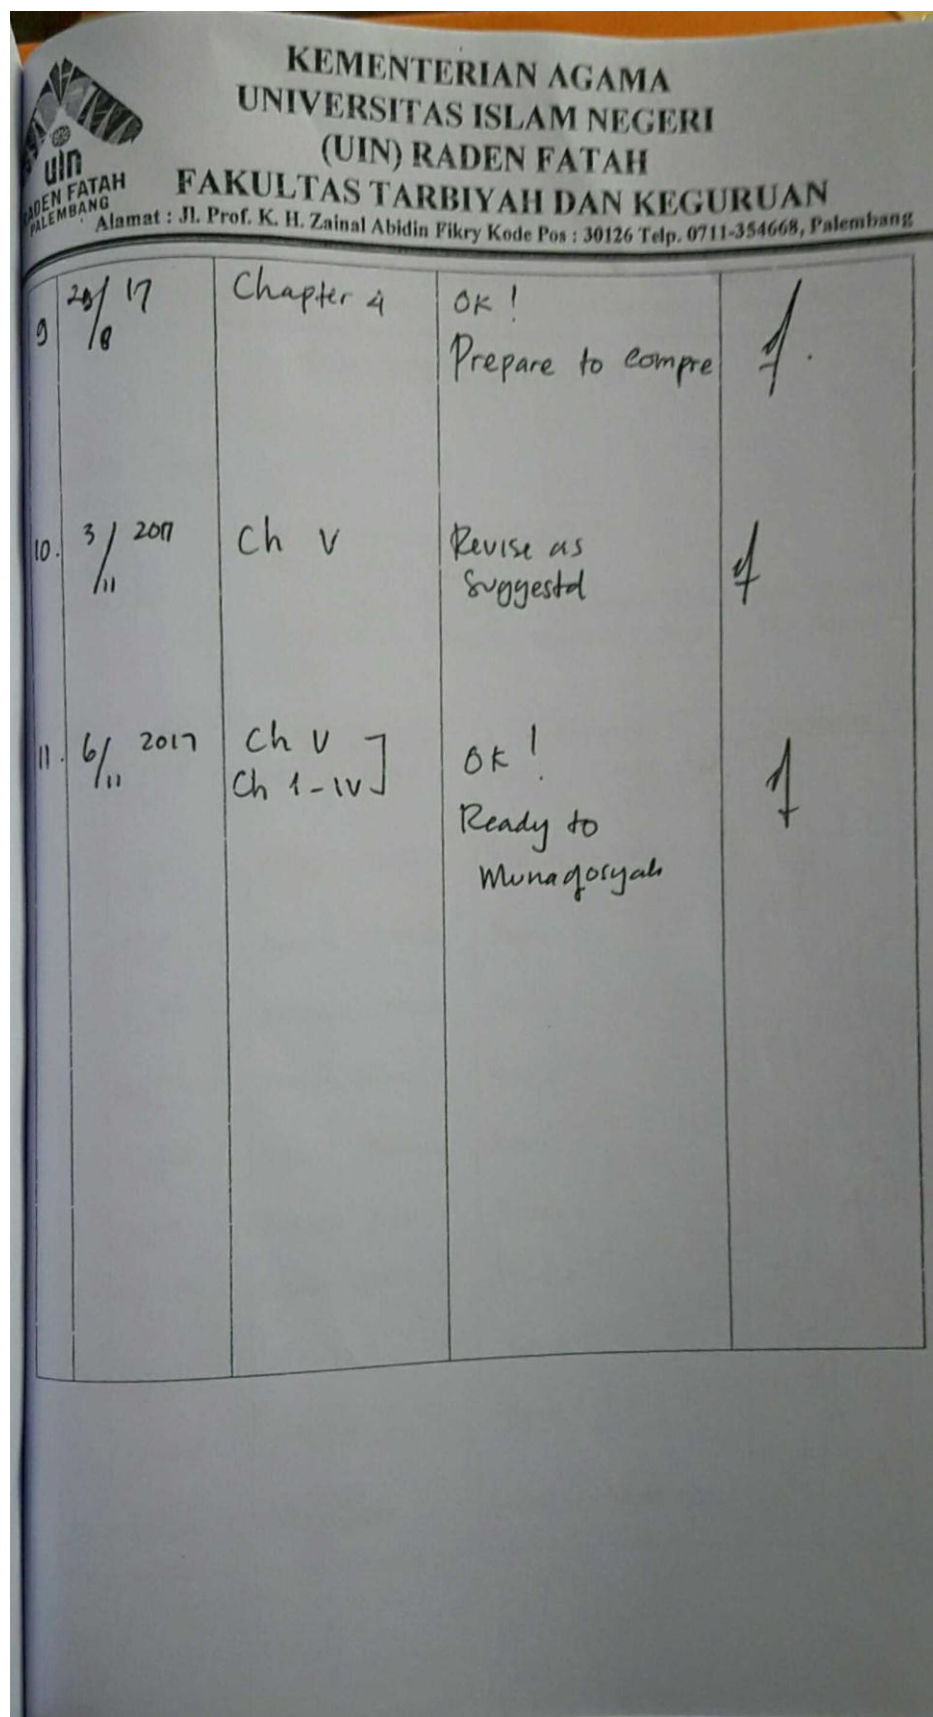 KEMENTERIAN AGAMA
UNIVERSITAS ISLAM NEGERI
(UIN) RADEN FATAH
FAKULTAS TARBIYAH DAN KEGURUAN
Alamat : Jl. Prof. K. H. Zainal Abidin Fikry Kode Pos : 30126 Telp. 0711-354668, Palembang
uin
RADEN FATAH
PALEMBANG
9 /8 17 Chapter 4 OK!
Prepare to compre
10. 3/11 2017 Ch V Revise as
suggestd
11. 6/11 2017 Ch V OK!
Ch 1-IV
Ready to
Munaqosyah